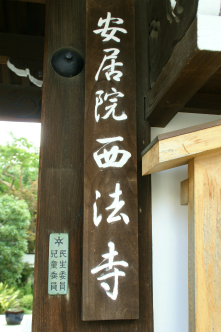 安居院西法寺
民生委員
児童委員